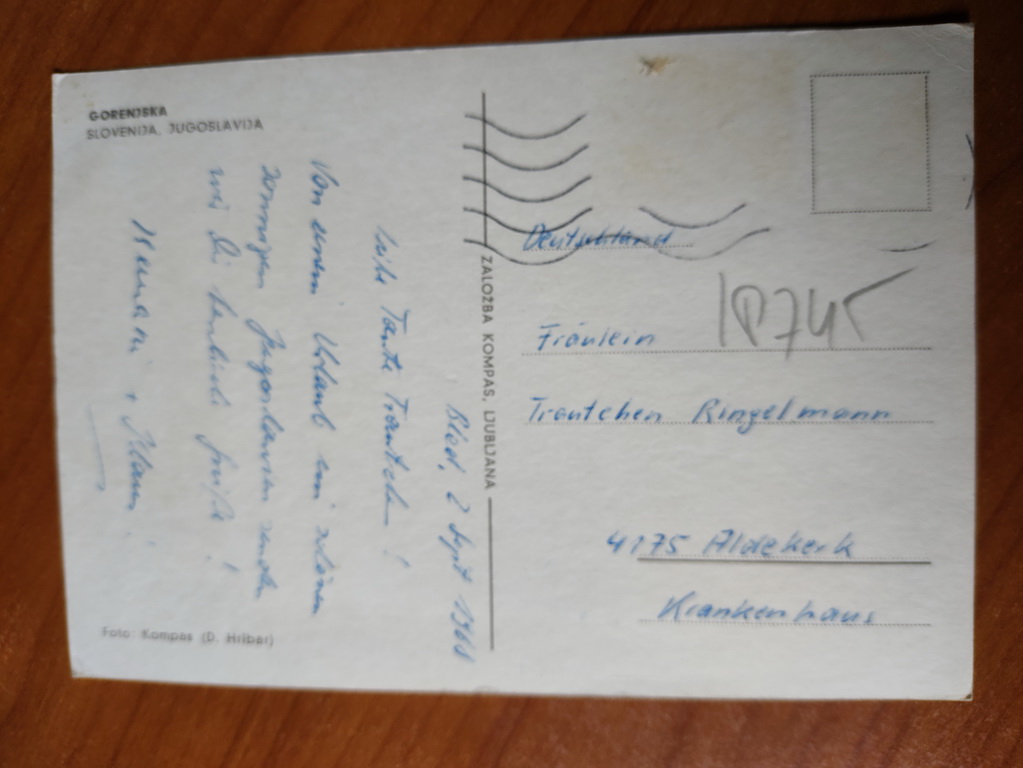 GORENJSKA
SLOVENIJA, JUGOSLAVIJA
Bled, 2 Sept 1968
Liebe Tante Trautchen!
Von einem Urlaub im schönen
sonnigen Jugoslawien senden
wir Dir herzliche Grüße!
+
Foto: Kompas (D. Hribar)
ZALOŽBA KOMPAS, LJUBLJANA
Deutschland
18745
Fräulein
Trautchen Ringelmann
4175 Aldekerk
Krankenhaus